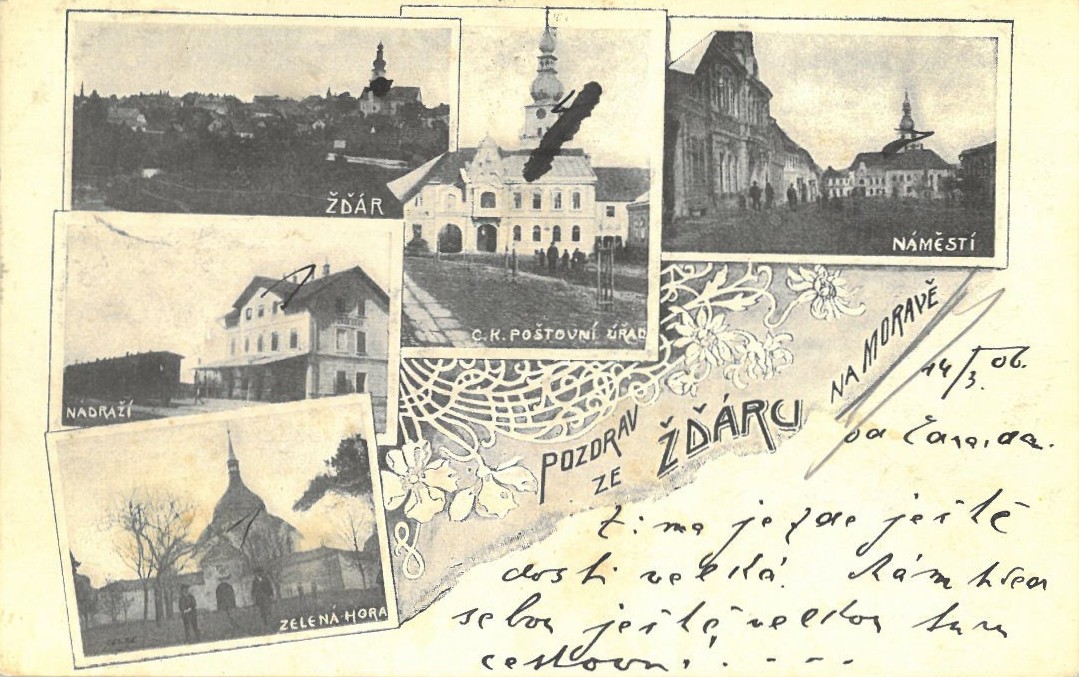 ŽĎÁR
C. K. POŠTOVNÍ ÚŘAD
NÁMĚSTÍ
NADRAŽÍ
ZELENÁ HORA
POZDRAV
ZE
ŽĎÁRU
NA MORAVĚ
14/3. 06.
Zima je zde ještě
dosti velká. Mám
sebou ještě velkou